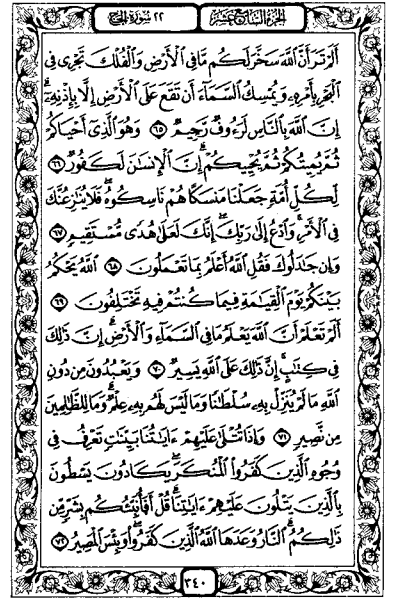 الجزء السابع عشر ٢٢ سورة الحج
أَلَمْ تَرَ أَنَّ ٱللَّهَ سَخَّرَ لَكُم مَّا فِى ٱلْأَرْضِ وَٱلْفُلْكَ تَجْرِى فِى
ٱلْبَحْرِ بِأَمْرِهِۦ وَيُمْسِكُ ٱلسَّمَآءَ أَن تَقَعَ عَلَى ٱلْأَرْضِ إِلَّا بِإِذْنِهِۦٓ ۗ
إِنَّ ٱللَّهَ بِٱلنَّاسِ لَرَءُوفٌ رَّحِيمٌ ٦٥ وَهُوَ ٱلَّذِىٓ أَحْيَاكُمْ
ثُمَّ يُمِيتُكُمْ ثُمَّ يُحْيِيكُمْ ۗ إِنَّ ٱلْإِنسَٰنَ لَكَفُورٌ ٦٦
لِّكُلِّ أُمَّةٍ جَعَلْنَا مَنسَكًا هُمْ نَاسِكُوهُ ۖ فَلَا يُنَٰزِعُنَّكَ
فِى ٱلْأَمْرِ ۚ وَٱدْعُ إِلَىٰ رَبِّكَ ۖ إِنَّكَ لَعَلَىٰ هُدًى مُّسْتَقِيمٍ ٦٧
وَإِن جَٰدَلُوكَ فَقُلِ ٱللَّهُ أَعْلَمُ بِمَا تَعْمَلُونَ ٦٨ ٱللَّهُ يَحْكُمُ
بَيْنَكُمْ يَوْمَ ٱلْقِيَٰمَةِ فِيمَا كُنتُمْ فِيهِ تَخْتَلِفُونَ ٦٩
أَلَمْ تَعْلَمْ أَنَّ ٱللَّهَ يَعْلَمُ مَا فِى ٱلسَّمَآءِ وَٱلْأَرْضِ ۗ إِنَّ ذَٰلِكَ
فِى كِتَٰبٍ ۚ إِنَّ ذَٰلِكَ عَلَى ٱللَّهِ يَسِيرٌ ٧٠ وَيَعْبُدُونَ مِن دُونِ
ٱللَّهِ مَا لَمْ يُنَزِّلْ بِهِۦ سُلْطَٰنًا وَمَا لَيْسَ لَهُم بِهِۦ عِلْمٌ ۗ وَمَا لِلظَّٰلِمِينَ
مِن نَّصِيرٍ ٧١ وَإِذَا تُتْلَىٰ عَلَيْهِمْ ءَايَٰتُنَا بَيِّنَٰتٍ تَعْرِفُ فِى
وُجُوهِ ٱلَّذِينَ كَفَرُوا۟ ٱلْمُنكَرَ ۖ يَكَادُونَ يَسْطُونَ
بِٱلَّذِينَ يَتْلُونَ عَلَيْهِمْ ءَايَٰتِنَا ۗ قُلْ أَفَأُنَبِّئُكُم بِشَرٍّ مِّن
ذَٰلِكُمُ ۗ ٱلنَّارُ وَعَدَهَا ٱللَّهُ ٱلَّذِينَ كَفَرُوا۟ ۖ وَبِئْسَ ٱلْمَصِيرُ ٧٢
٣٤٠